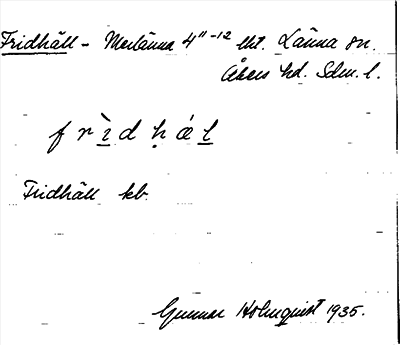 Fridhäll - Merlänna 4¹¹⁻¹² lht. Länna sn.
Åkers hd. Sdm. l.
f r ì d ḥ ǽ l
Fridhäll kb.
Gunnar Holmquist 1935.